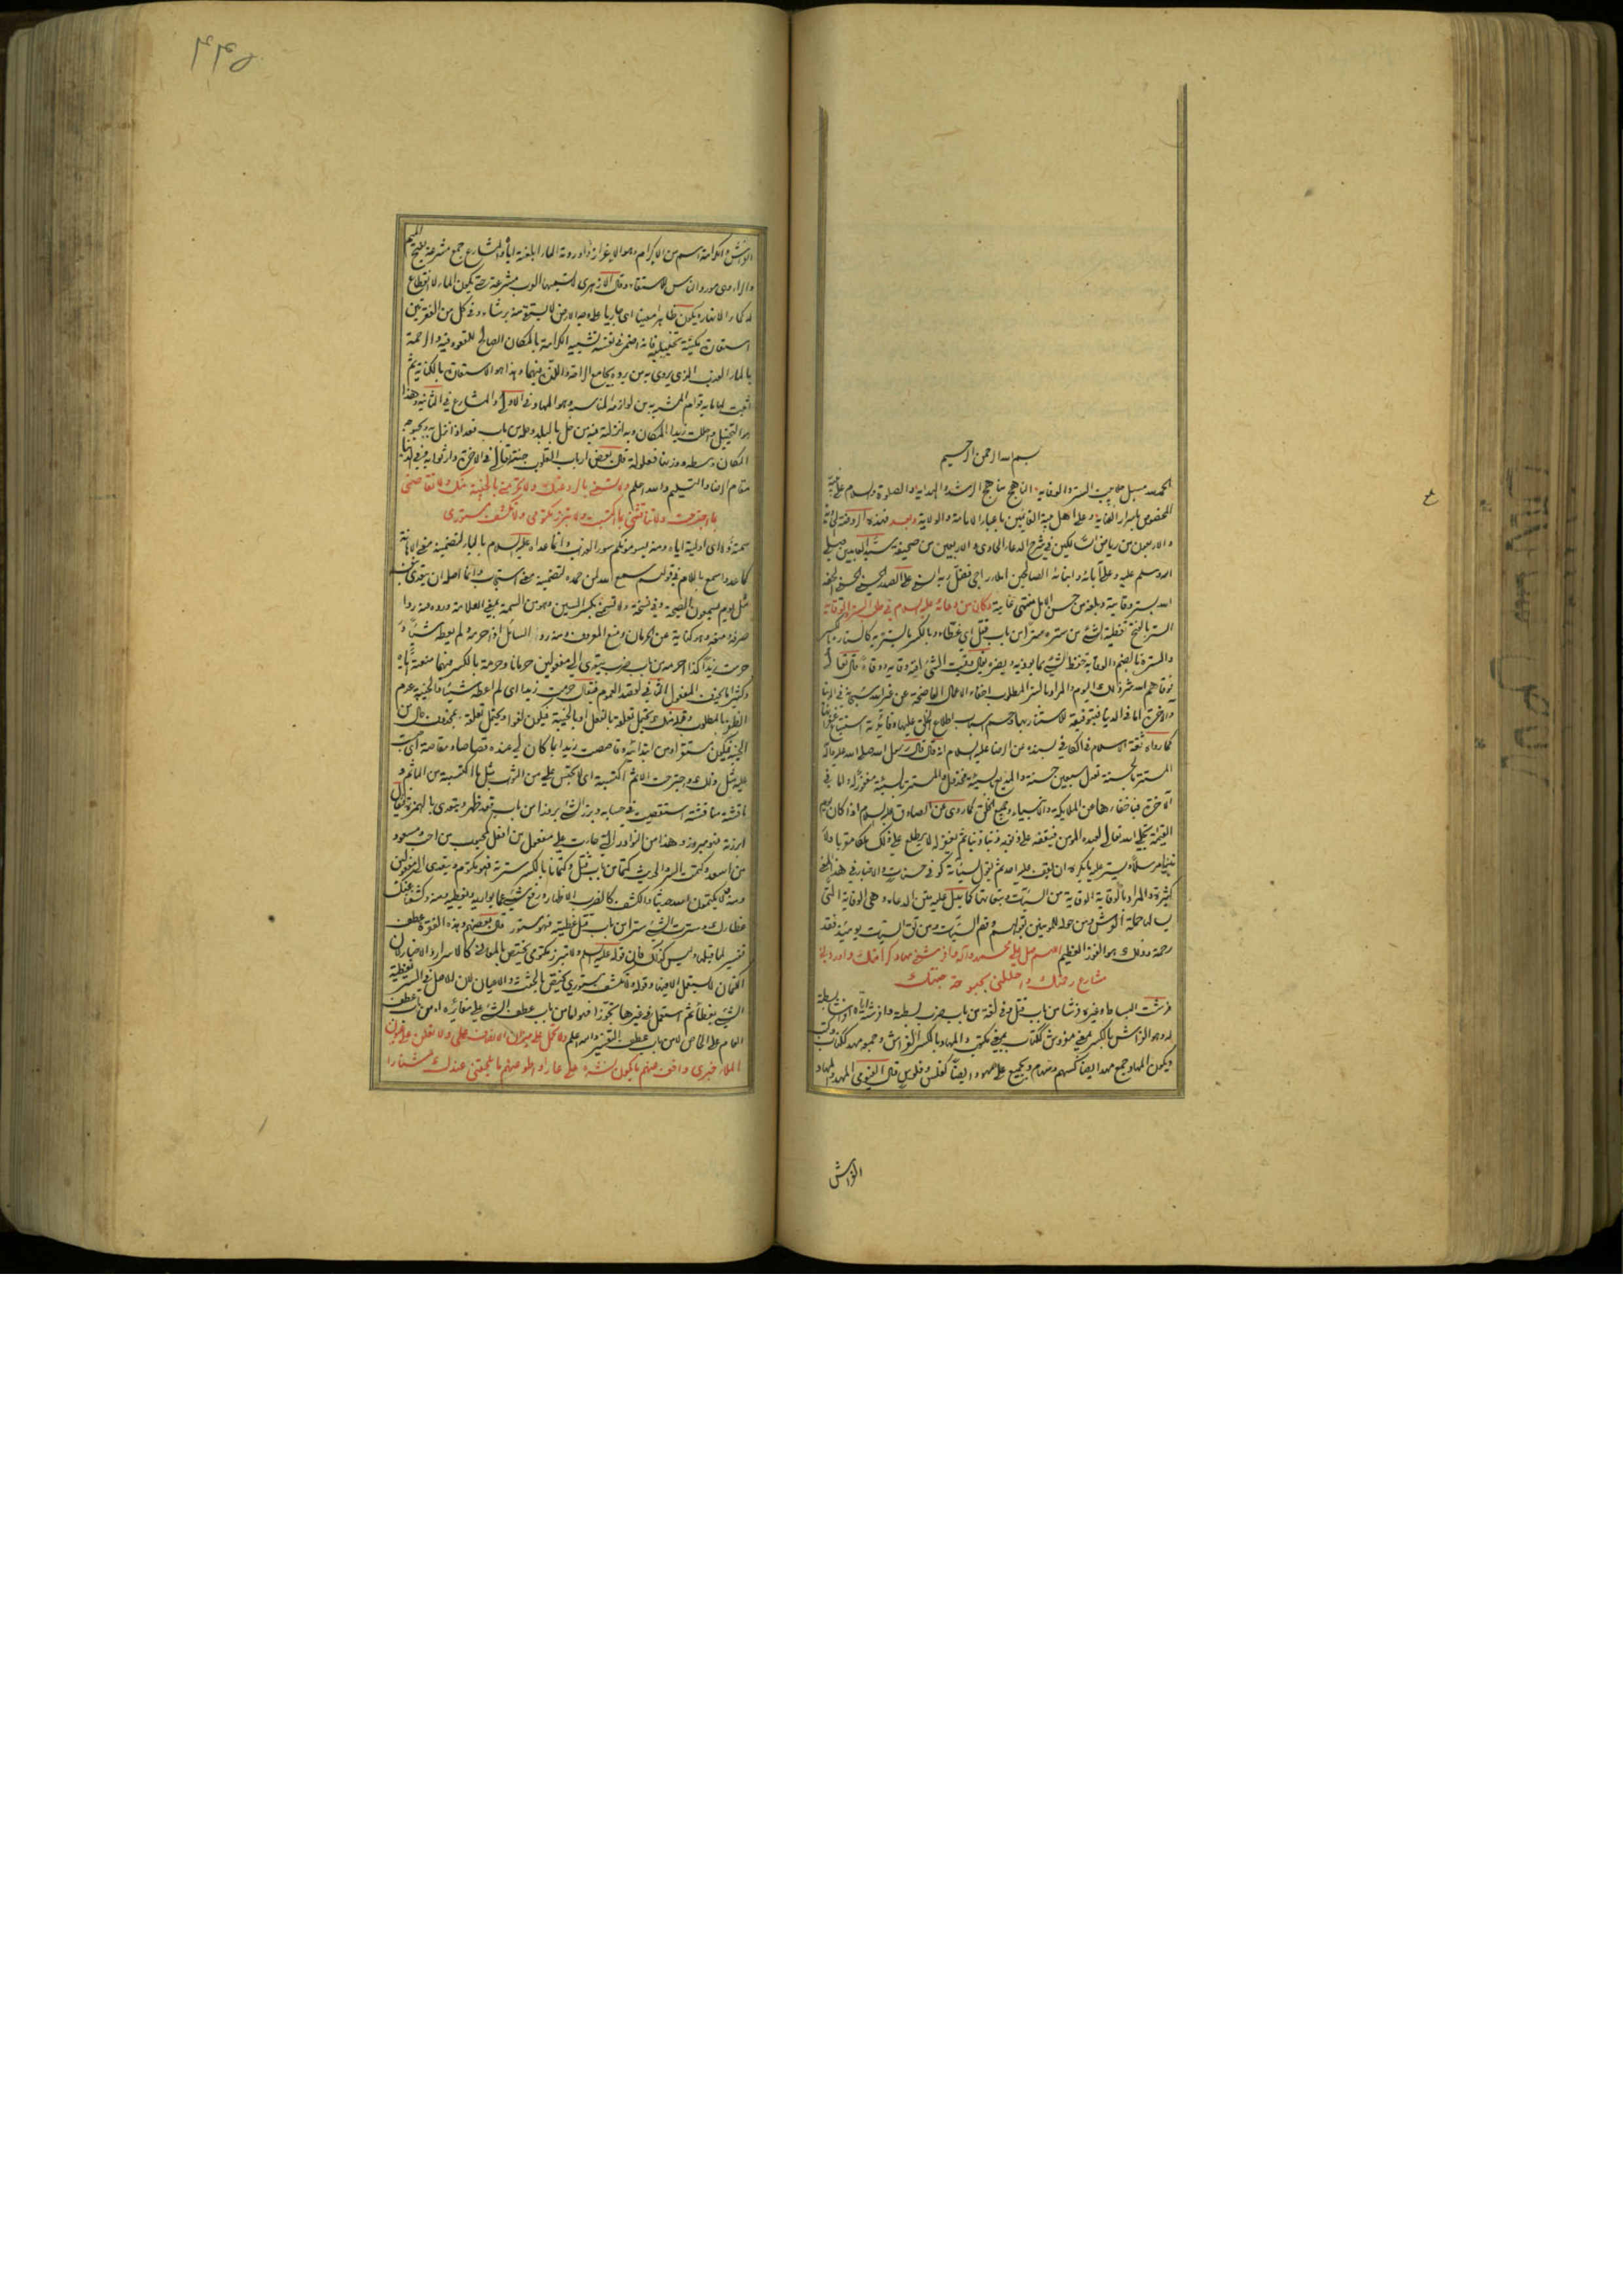 بسم الله الرحمن الرحيم
الحمد لله مسبل جلابيب الستر والوقاية الناهج مناهج الرشد والهداية والصلوة والسلام على نبيه
المخصوص باسرار العناية وعلى اهل بيته القائمين باعباء الامامة والولاية وبعد فهذه الروضة الحادية
والاربعون من رياض السالكين في شرح الدعاء الحادي والاربعين من صحيفة سيد العابدين صلى
الله وسلم عليه وعلى آبائه وابنائه الصالحين املاء راجي فضل ربه السني علي الصدر الحسيني الحسني الحفه
الله بستر وقايته وبلغه من حسن الامل منتهى غايته وكان من دعائه عليه السلام في طلب الستر والوقاية
الستر بالفتح تغطية الشئ من ستره سترا من باب قتل اي غطاه وبالكسر ما يستتر به كالستارة بالكسر
والسترة بالضم والوقاية حفظ الشئ مما يؤذيه ويضره يقال وقيت الشئ اقيه وقاية ووقاء قال تعالى
فوقاهم الله شر ذلك اليوم والمراد بالستر المطلوب اخفاء الاعمال الفاضحة عن غير الله سبحانه في الدنيا
والآخرة اما في الدنيا فبتوفيقه للاستتار بها وحسم اسباب اطلاع الخلق عليها
كما رواه ثقة الاسلام في الكافي بسنده عن الرضا عليه السلام انه قال قال رسول الله صلى الله عليه وآله
المستتر بالحسنة تعدل سبعين حسنة والمذيع بالسيئة مخذول والمستتر بالسيئة مغفور له واما في
الآخرة فباخفائها عن الملائكة والانبياء وجميع الخلق كما روي عن الصادق عليه السلام اذا كان يوم
القيمة تجلى الله تعالى لعبده المؤمن فيقفه على ذنوبه ذنبا ذنبا ثم يغفر له لا يطلع على ذلك ملكا مقربا ولا
نبيا مرسلا ويستر عليه ما يكره ان يقف عليه احد ثم يقول لسيئاته كوني حسنات والاخبار في هذا المعنى
كثيرة والمراد بالوقاية الوقاية من السيئات وتبعاتها كما يدل عليه متن الدعاء وهي الوقاية التي
سالها حملة العرش ومن حوله للمؤمنين بقولهم وقهم السيئات ومن تق السيئات يومئذ فقد
رحمته وذلك هو الفوز العظيم اللهم صل على محمد وآله وافرشني مهاد كرامتك واوردني
مشارع رحمتك واحللني بحبوحة جنتك
فرشت البساط وغيره فرشا من باب قتل وفي لغة من باب ضرب بسطته وافرشته اياه
له وهو الفراش بالكسر بمعنى مفروش ككتاب بمعنى مكتوب والمهاد بالكسر الفراش وجمعه مهد ككتاب وكتب
ويكون المهاد جمع مهد ايضا كسهم وسهام ويجمع على مهود ايضا كفلس وفلوس قال الفيومي المهد والمهاد
الفراش
ع
٤٤٥
الفراش والكرامة اسم من الاكرام وهو الاعزاز واوردته الماء ابلغته اياه والمشارع جمع مشرعة بفتح الميم
والراء وهي مورد الناس للاستقاء وقال الازهري لا تسميها العرب مشرعة حتى يكون الماء لا انقطاع
له كماء الانهار ويكون ظاهرا معينا اي جاريا على وجه الارض لا يستقى منه برشاء وفي كل من الفقرتين
استعارة مكنية تخييلية فانه اضمر في نفسه تشبيه الكرامة بالمكان الصالح للقعود فيه والرحمة
بالماء العذب الذي يروي به من يرده بجامع الراحة واللذة فيهما وهذا هو الاستعارة بالكناية ثم
اثبت لهما ما به قوام المشبه به من لوازمه المناسبة وهو المهاد في الاولى والمشارع في الثانية وهذا
هو التخييل واحللت زيدا المكان وبه انزلته فيه من حل بالبلد وحله من باب قعد اذا نزل به وبحبوحة
المكان وسطه ووزنها فعلولة قال بعض ارباب القلوب جنته تعالى في الآخرة دار ثوابه وفي الدنيا
مقام الرضا والتسليم والله اعلم ولا تسمني بالرد عنك ولا تحرمني بالخيبة منك ولا تقاصني
بما اجترحت ولا تناقشني بما اكتسبت ولا تبرز مكتومي ولا تكشف مستوري
سمته ذلا اي اوليته اياه ومنه يسومونكم سوء العذاب وانما عداه عليه السلام بالباء لتضمينه معنى الاهانة
كما عدوا سمع باللام في قولهم سمع الله لمن حمده لتضمينه معنى استجاب وانما اصله ان يتعدى بنفسه
مثل يوم يسمعون الصيحة وفي نسخة ولا تسمني بكسر السين وهو من السمة بمعنى العلامة ورده ردا
صرفه ومنعه وهو كناية عن الحرمان ومنع المعروف ومنه رد السائل اذا حرمه ولم يعطه شيئا و
حرمت زيدا كذا احرمه من باب ضرب يتعدى الى مفعولين حرمانا وحرمة بالكسر فيهما منعته اياه
وكثيرا ما يحذف المفعول الثاني لقصد العموم فيقال حرمت زيدا اي لم اعطه شيئا والخيبة عدم
الظفر بالمطلوب وقوله منك يحتمل تعلقه بالفعل او بالخيبة فيكون لغوا ويحتمل تعلقه بمحذوف حال من
الخيبة فيكون مستقرا ومن ابتدائية وقاصصت زيدا بما كان لي عنده قصاصا ومقاصة
عليه مثل ذلك واجترحت الاثم اكتسبته اي لا تحبس علي من الثواب مثل ما اكتسبته من المآثم و
ناقشته مناقشة استقصيت في حسابه وبرز الشئ بروزا من باب قعد ظهر ويتعدى بالهمزة فيقال
ابرزته فهو مبروز وهذا من النوادر التي جاءت على مفعول من افعل كمحبوب من احب ومسعود
من اسعد وكتمت السر والحديث كتما من باب قتل وكتمانا بالكسر سترته فهو مكتوم ويتعدى الى مفعولين
ومنه لا يكتمون الله حديثا والكشف كالضرب الاظهار ورفع شئ عما يواريه ويغطيه ومنه وكشفنا عنك
غطاءك وسترت الشئ سترا من باب قتل غطيته فهو مستور قال بعضهم وهذه الفقرة عطف
تفسير لما قبلها وليس كذلك فان قوله عليه السلام ولا تبرز مكتومي يختص بالمعاني كالاسرار والاخبار لان
الكتمان لا يستعمل الا فيها وقوله ولا تكشف مستوري يختص بالجثث والاعيان لان الاصل في الستر تغطية
الشئ بغطاء ثم استعمل في غيرها تجوزا فهو اما من باب عطف الشئ على مغايره او من باب عطف
العام على الخاص لا من باب عطف التفسير والله اعلم ولا تحمل على ميزان الانصاف عملي ولا تعلن على عيون
الملاء خبري واخف عنهم ما يكون نشره علي عارا واطو عنهم ما يلحقني عندك شنارا